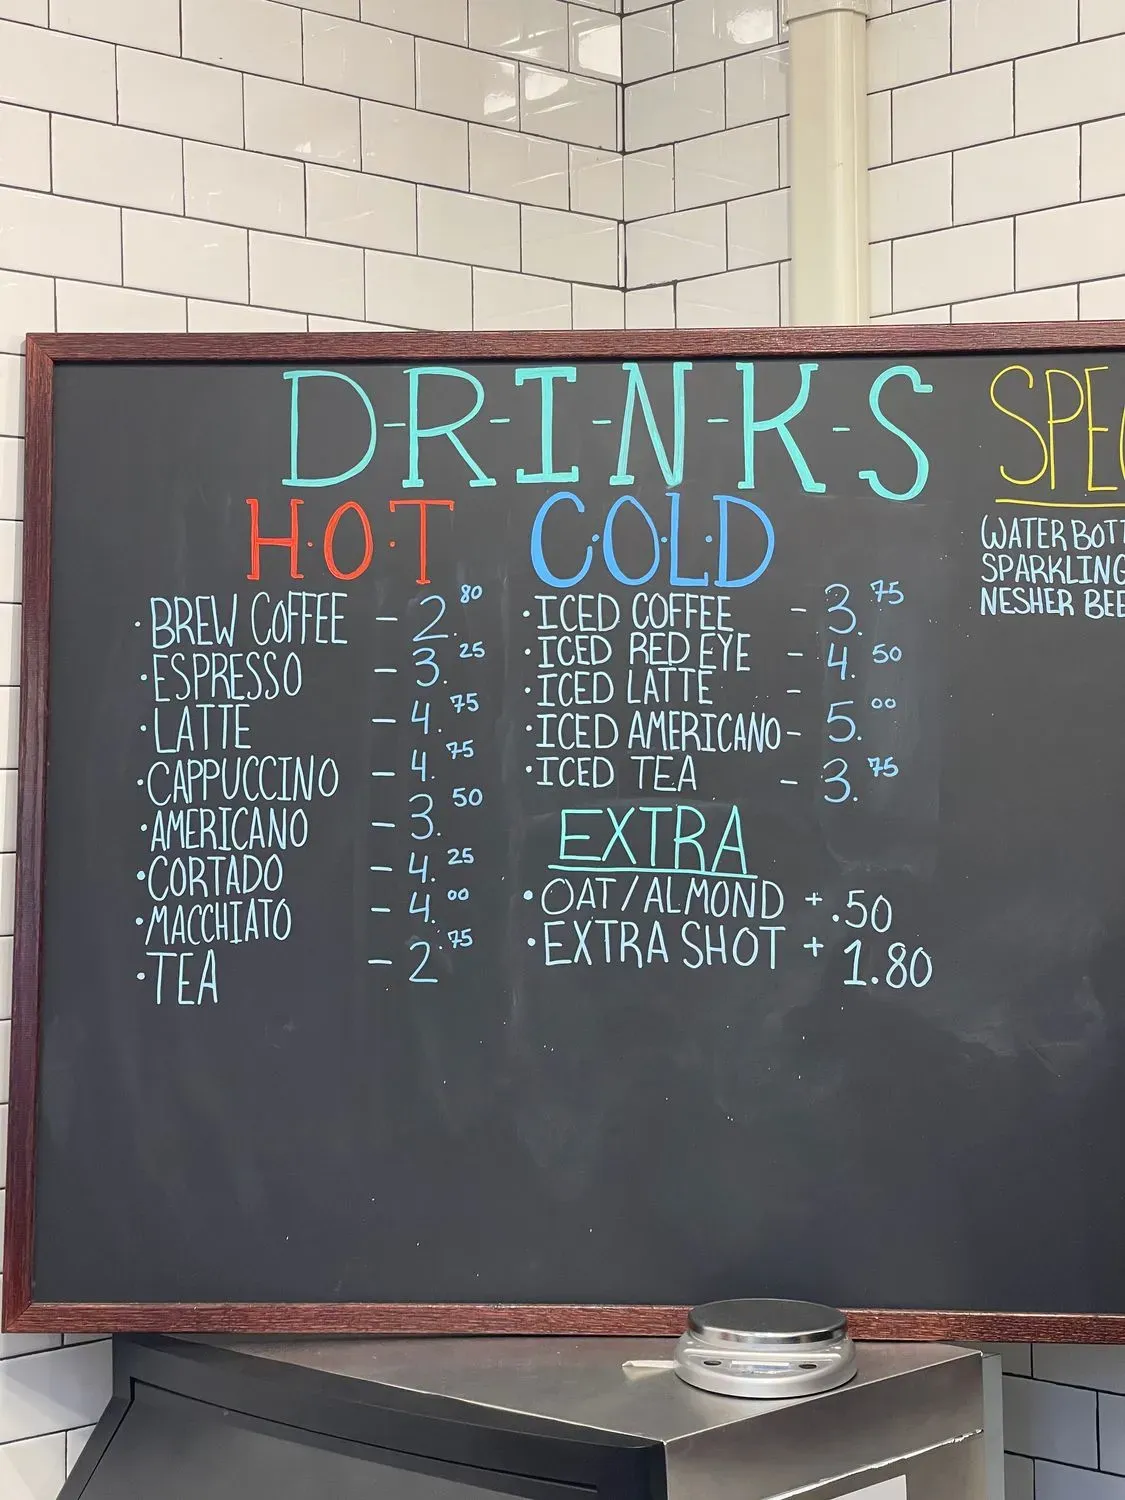 D-R-I-N-K-S
H·O·T
· BREW COFFEE - 2.80
· ESPRESSO - 3.25
· LATTE - 4.75
· CAPPUCCINO - 4.75
· AMERICANO - 3.50
· CORTADO - 4.25
· MACCHIATO - 4.00
· TEA - 2.75
C·O·L·D
· ICED COFFEE - 3.75
· ICED RED EYE - 4.50
· ICED LATTE -
· ICED AMERICANO - 5.00
· ICED TEA - 3.75
EXTRA
· OAT/ALMOND + .50
· EXTRA SHOT + 1.80
SPE
WATER BOTT
SPARKLING
NESHER BEE